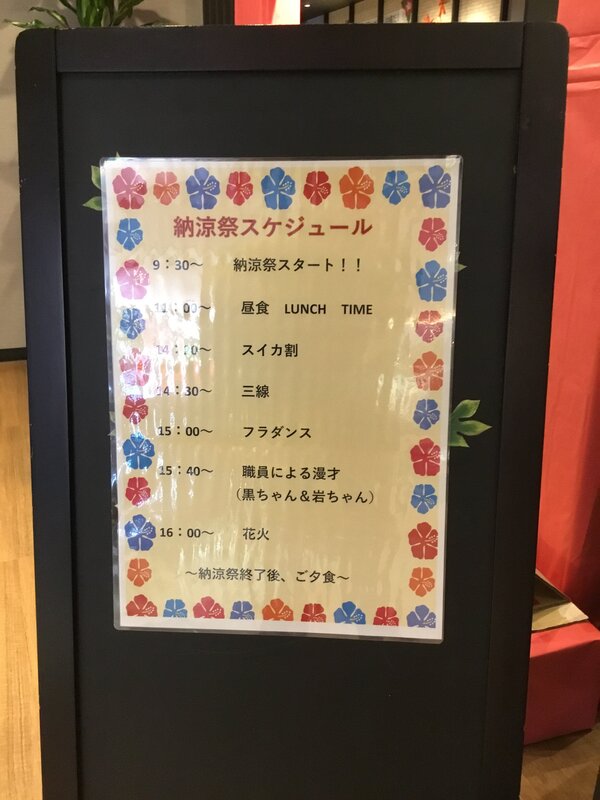 納涼祭スケジュール
9:30～ 納涼祭スタート!!
11:00～ 昼食 LUNCH TIME
スイカ割
14:30～ 三線
15:00～ フラダンス
15:40～ 職員による漫才
(黒ちゃん&岩ちゃん)
16:00～ 花火
～納涼祭終了後、ご夕食～